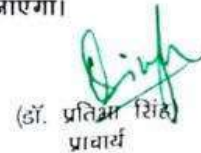 जाएगा।
(डॉ. प्रतिभा सिंह)
प्राचार्य